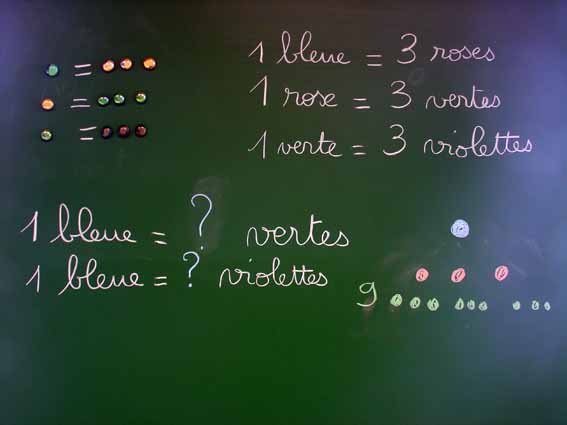 =
=
=
1 bleue = 3 roses
1 rose = 3 vertes
1 verte = 3 violettes
1 bleue = ? vertes
1 bleue = ? violettes
9